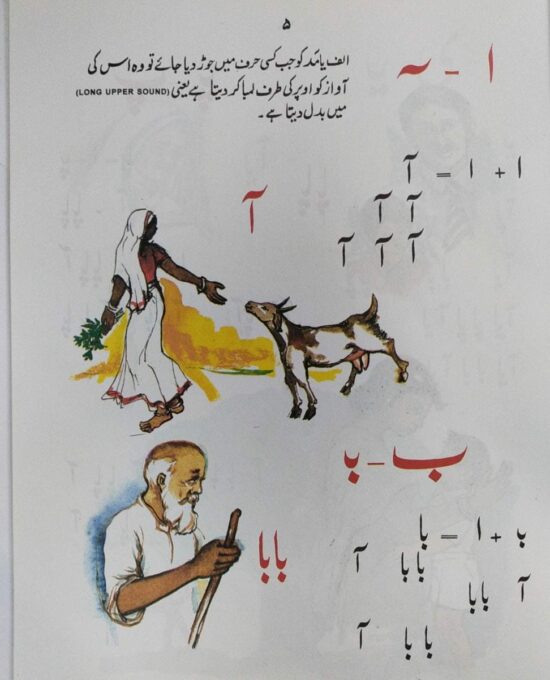 ۵
ا - ~
الف یا مد کو جب کسی حرف میں جوڑ دیا جائے تو وہ اس کی
آواز کو اوپر کی طرف لمبا کر دیتا ہے یعنی (LONG UPPER SOUND)
میں بدل دیتا ہے۔
ا + ا = آ
آ آ
آ آ آ
آ
ب - بـ
بـ + ا = با
بابا آ
آ بابا
بابا آ
بابا